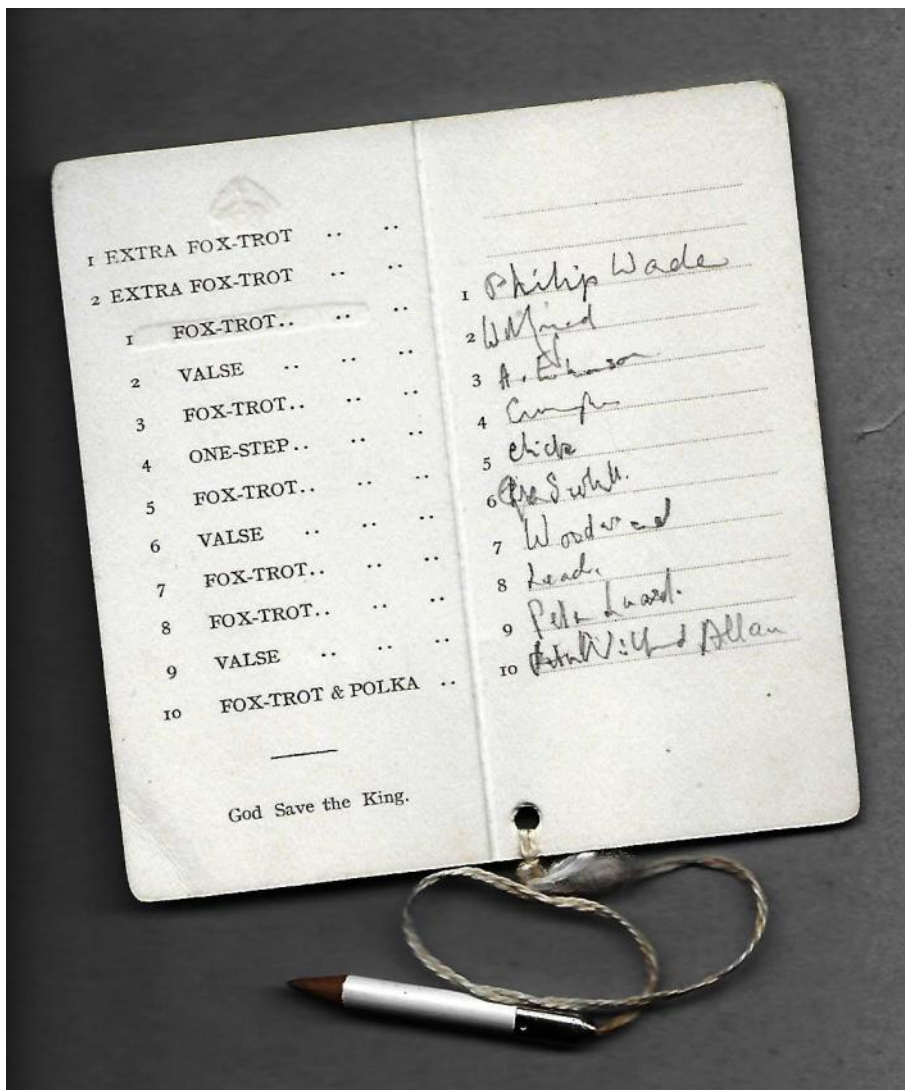 1 EXTRA FOX-TROT .. ..
2 EXTRA FOX-TROT .. ..
1 FOX-TROT.. .. ..
2 VALSE .. .. ..
3 FOX-TROT.. .. ..
4 ONE-STEP.. .. ..
5 FOX-TROT.. .. ..
6 VALSE .. .. ..
7 FOX-TROT.. .. ..
8 FOX-TROT.. .. ..
9 VALSE .. .. ..
10 FOX-TROT & POLKA ..
God Save the King.
1 Philip Wade
2 Wilfred
3 A.
4
5 Chick
6
7 Woodward
8 Lead.
9 Peter Luard.
10 Wilfred Allan